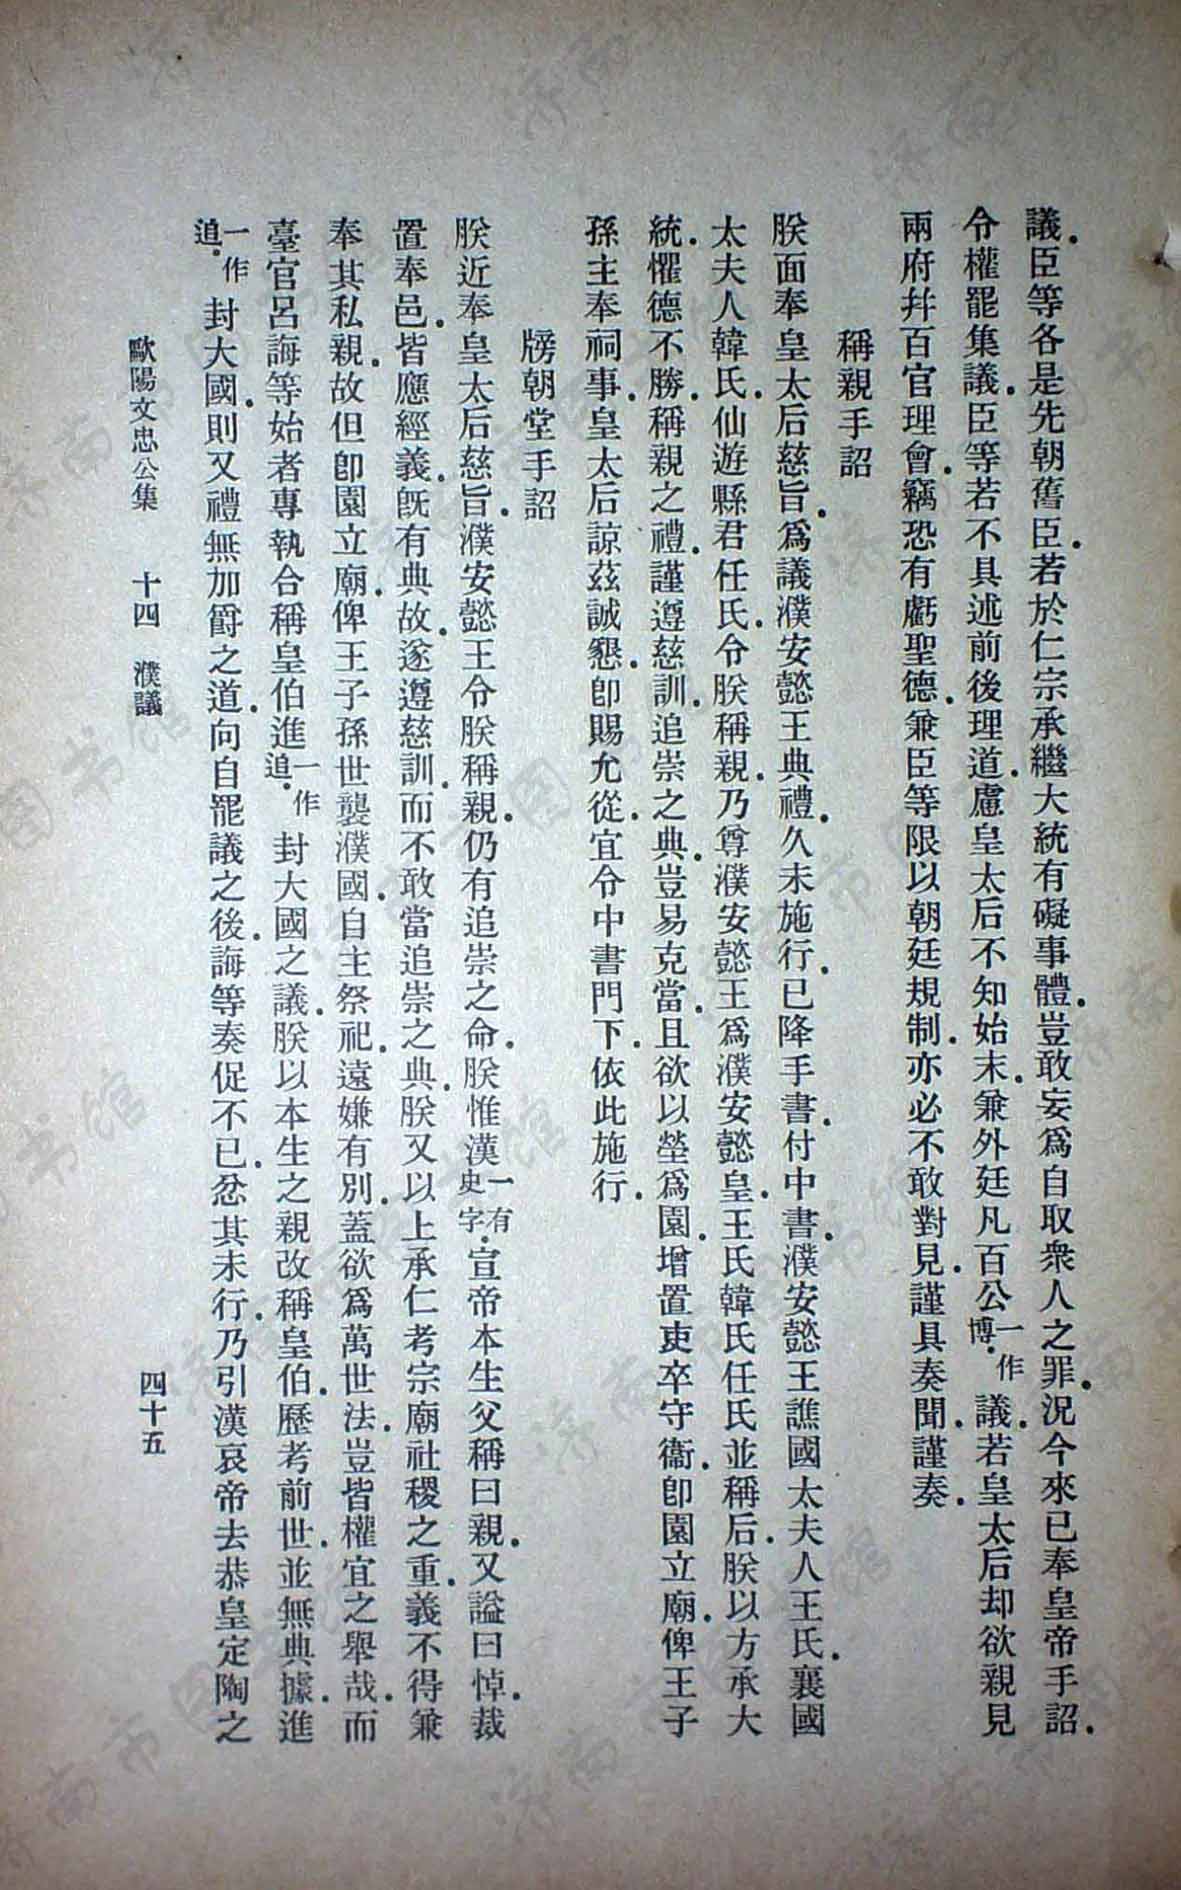 議．臣等各是先朝舊臣．若於仁宗承繼大統有礙事體．豈敢妄爲自取衆人之罪．況今來已奉皇帝手詔．
令權罷集議．臣等若不具述前後理道．慮皇太后不知始末．兼外廷凡百公一作博．議．若皇太后却欲親見
兩府幷百官理會．竊恐有虧聖德．兼臣等限以朝廷規制．亦必不敢對見．謹具奏聞．謹奏．
稱親手詔
朕面奉皇太后慈旨．爲議濮安懿王典禮．久未施行．已降手書．付中書．濮安懿王譙國太夫人王氏．襄國
太夫人韓氏．仙遊縣君任氏．令朕稱親．乃尊濮安懿王爲濮安懿皇．王氏韓氏任氏並稱后．朕以方承大
統．懼德不勝．稱親之禮．謹遵慈訓．追崇之典．豈易克當．且欲以塋爲園．增置吏卒守衞．卽園立廟．俾王子
孫主奉祠事．皇太后諒茲誠懇．卽賜允從．宜令中書門下．依此施行．
牓朝堂手詔
朕近奉皇太后慈旨．濮安懿王令朕稱親．仍有追崇之命．朕惟漢一有史字．宣帝本生父稱曰親．又謚曰悼．裁
置奉邑．皆應經義．旣有典故．遂遵慈訓．而不敢當追崇之典．朕又以上承仁考宗廟社稷之重．義不得兼
奉其私親．故但卽園立廟．俾王子孫世襲濮國．自主祭祀．遠嫌有別．蓋欲爲萬世法．豈皆權宜之舉哉．而
臺官呂誨等始者專執合稱皇伯進一作追．封大國之議．朕以本生之親改稱皇伯．歷考前世．並無典據．進
一作追．封大國．則又禮無加爵之道．向自罷議之後．誨等奏促不已．忿其未行．乃引漢哀帝去恭皇定陶之
歐陽文忠公集　十四　濮議　四十五